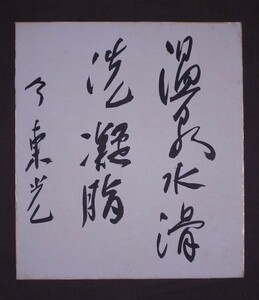 温泉水滑
洗凝脂
今東光